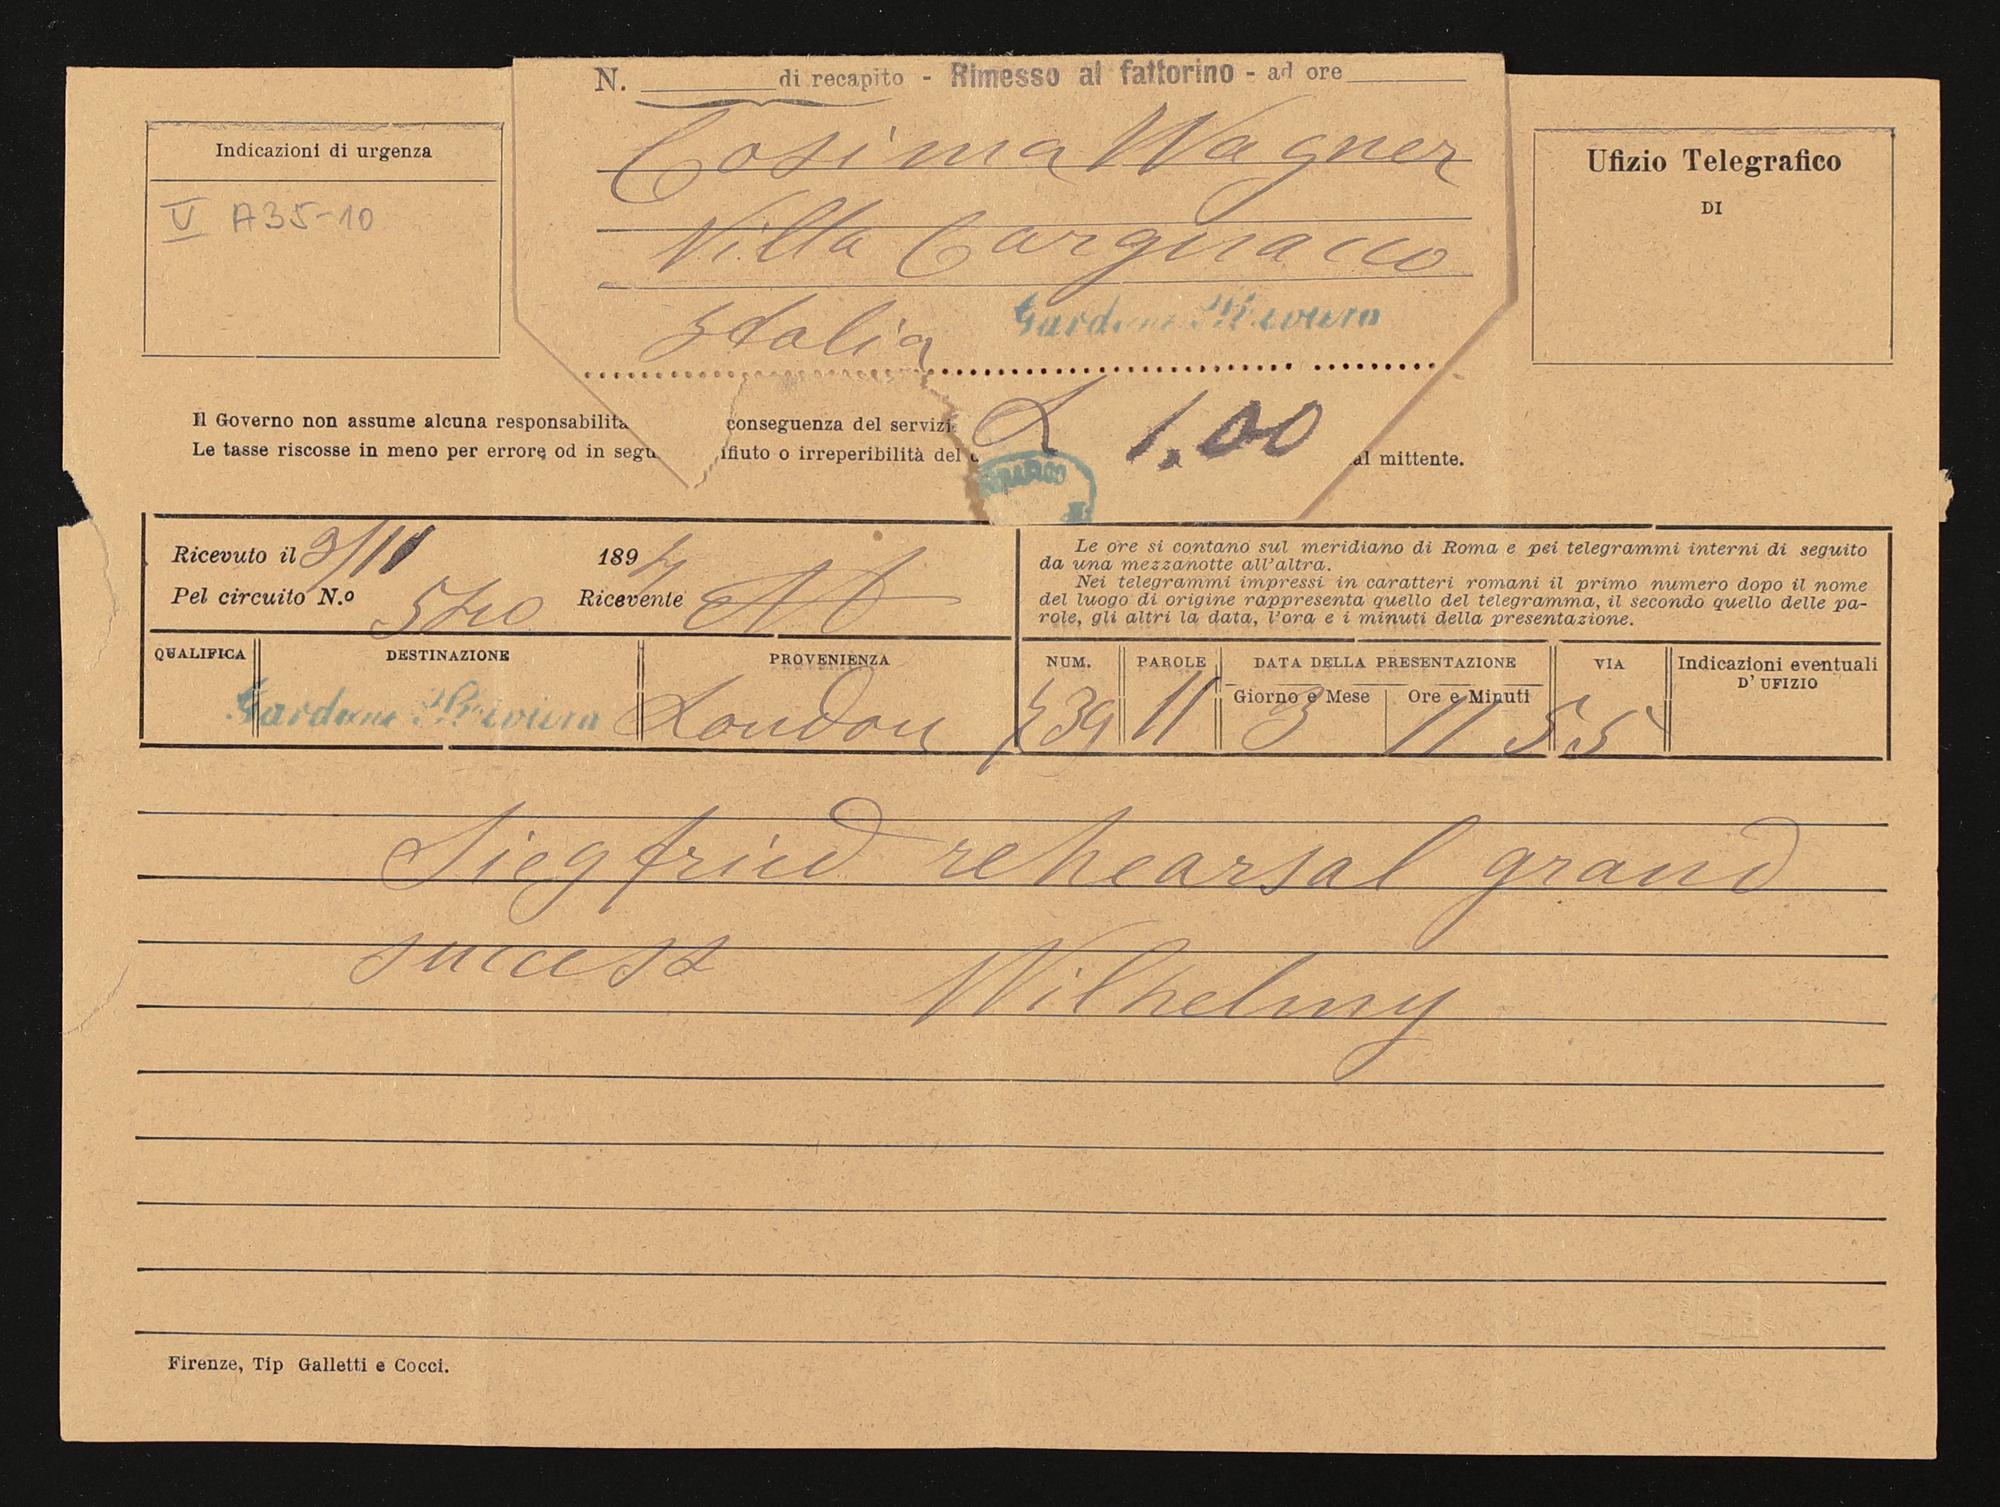 N. di recapito - Rimesso al fattorino - ad ore
Cosima Wagner
Villa Cargnacco
Italia
Gardone Riviera
L 1,00
Indicazioni di urgenza
V A35-10
Ufizio Telegrafico
DI
Il Governo non assume alcuna responsabilita conseguenza del servizi
Le tasse riscosse in meno per errore od in segu ifiuto o irreperibilità del al mittente.
Ricevuto il 3/11 189
Pel circuito N.º 540 Ricevente
Le ore si contano sul meridiano di Roma e pei telegrammi interni di seguito
da una mezzanotte all'altra.
Nei telegrammi impressi in caratteri romani il primo numero dopo il nome
del luogo di origine rappresenta quello del telegramma, il secondo quello delle pa-
role, gli altri la data, l'ora e i minuti della presentazione.
QUALIFICA DESTINAZIONE PROVENIENZA NUM. PAROLE DATA DELLA PRESENTAZIONE VIA Indicazioni eventuali
D'UFIZIO
Giorno e Mese Ore e Minuti
Gardone Riviera London 39 11 3 11 55
Siegfried rehearsal grand
success Wilhelmy
Firenze, Tip Galletti e Cocci.